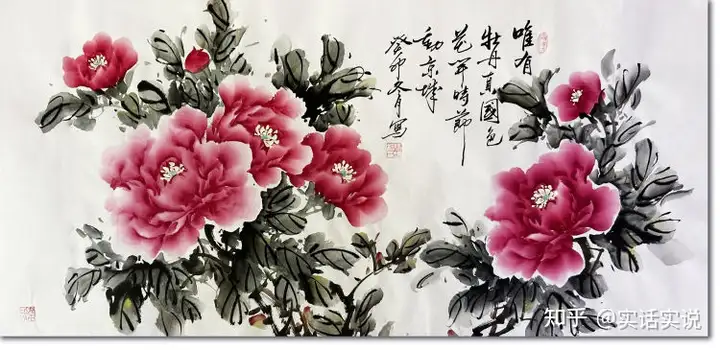 唯有
牡丹真國色
花開時節
動京城
癸卯冬月寫
知乎 @实话实说